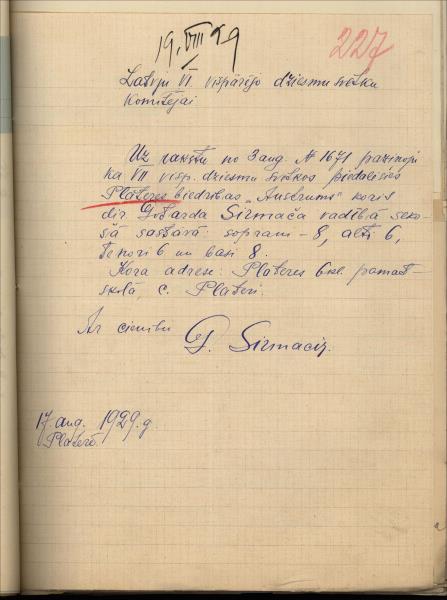 19. VIII 29
227
Latvju VI vispārējo dziesmu svētku
Komitejai
Uz rakstu no 3 aug. № 1671 paziņoju
ka VII visp. dziesmu svētkos piedalīsies
Plāteres biedrības „Austrums" koris
dir. Gotarda Sirmača vadībā seko-
šā sastāvā: soprani - 8, alti 6,
tenori 6 un basi 8.
Kora adrese: Plāteres 6kl. pamat-
skolā, c. Plāteri.
Ar cieņu G. Sirmacis.
17. aug. 1929. g.
Plāterē